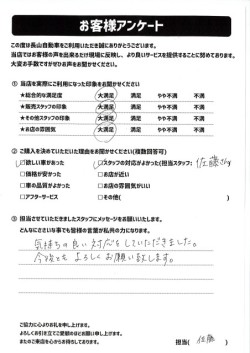 お客様アンケート
この度は長山自動車をご利用いただき誠にありがとうございます。
当店ではお客様の声を出来るだけ現場に反映し、より良いサービスを提供することに努めております。
大変お手数ですがぜひお声をお聞かせください。
① 当店を実際にご利用になった印象をお聞かせください
★総合的な満足度 大満足 満足 やや不満 不満
★販売スタッフの印象 大満足 満足 やや不満 不満
★その他スタッフの印象 大満足 満足 やや不満 不満
★お店の雰囲気 大満足 満足 やや不満 不満
② ご購入を決めていただいた理由をお聞かせください(複数回答可)
□欲しい車があった □スタッフの対応がよかった(担当スタッフ: 佐藤さん)
□価格が安かった □お店が近い
□車の品質がよかった □お店の雰囲気がいい
□アフターサービス □その他( )
③ 担当させていただきましたスタッフにメッセージをお願いいたします。
どんなにささいな事でも皆様の言葉が私共の力になります。
気持ちの良い対応をしていただきました。
今後ともよろしくお願い致します。
ご協力に心よりお礼を申し上げます。
よろしくお引き立てご愛顧のほどお願い申し上げます。
またのご来店を心からお待ちしております。
担当( 佐藤 )